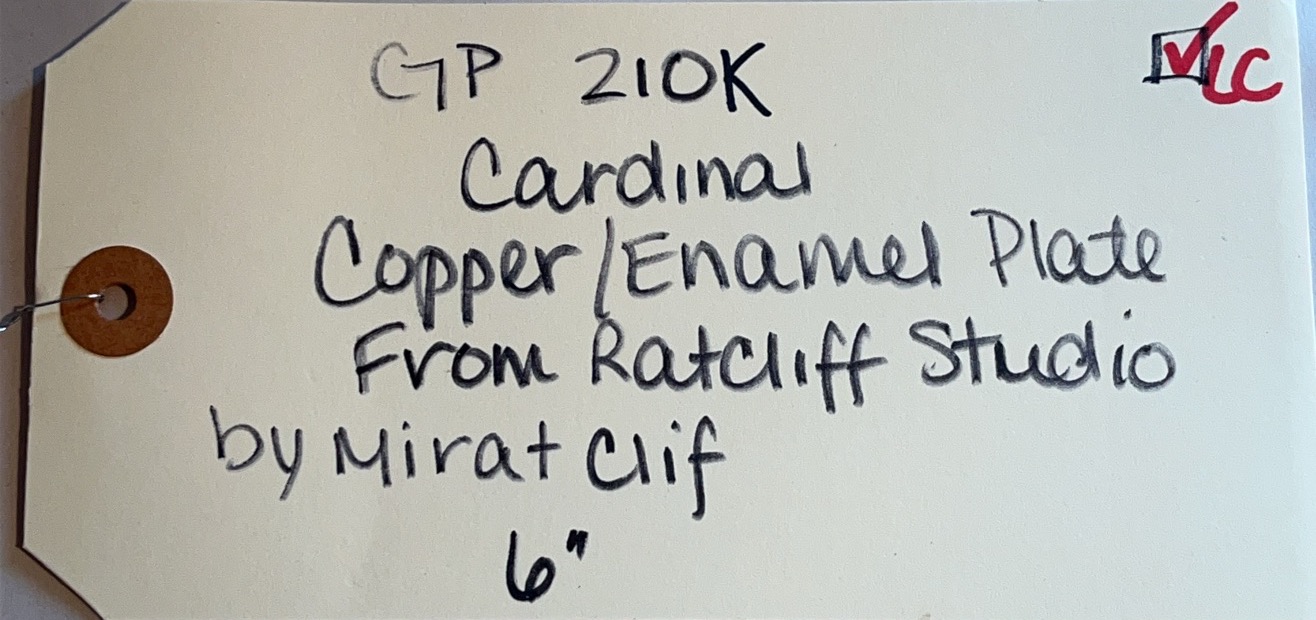 GP 210K
☑ LC
Cardinal
Copper/Enamel Plate
From Ratcliff Studio
by Mirat Clif
6"